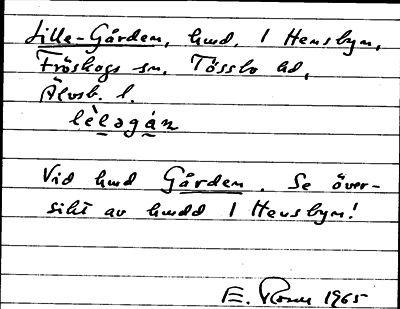 Lille-Gården, hmd. 1 Hensbyn,
Fröskogs sn. Tössbo hd,
Älvsb. l.
lèlagán
Vid hmd Gården. Se över-
sikt av hmdd 1 Hensbyn!
E. Rosén 1965